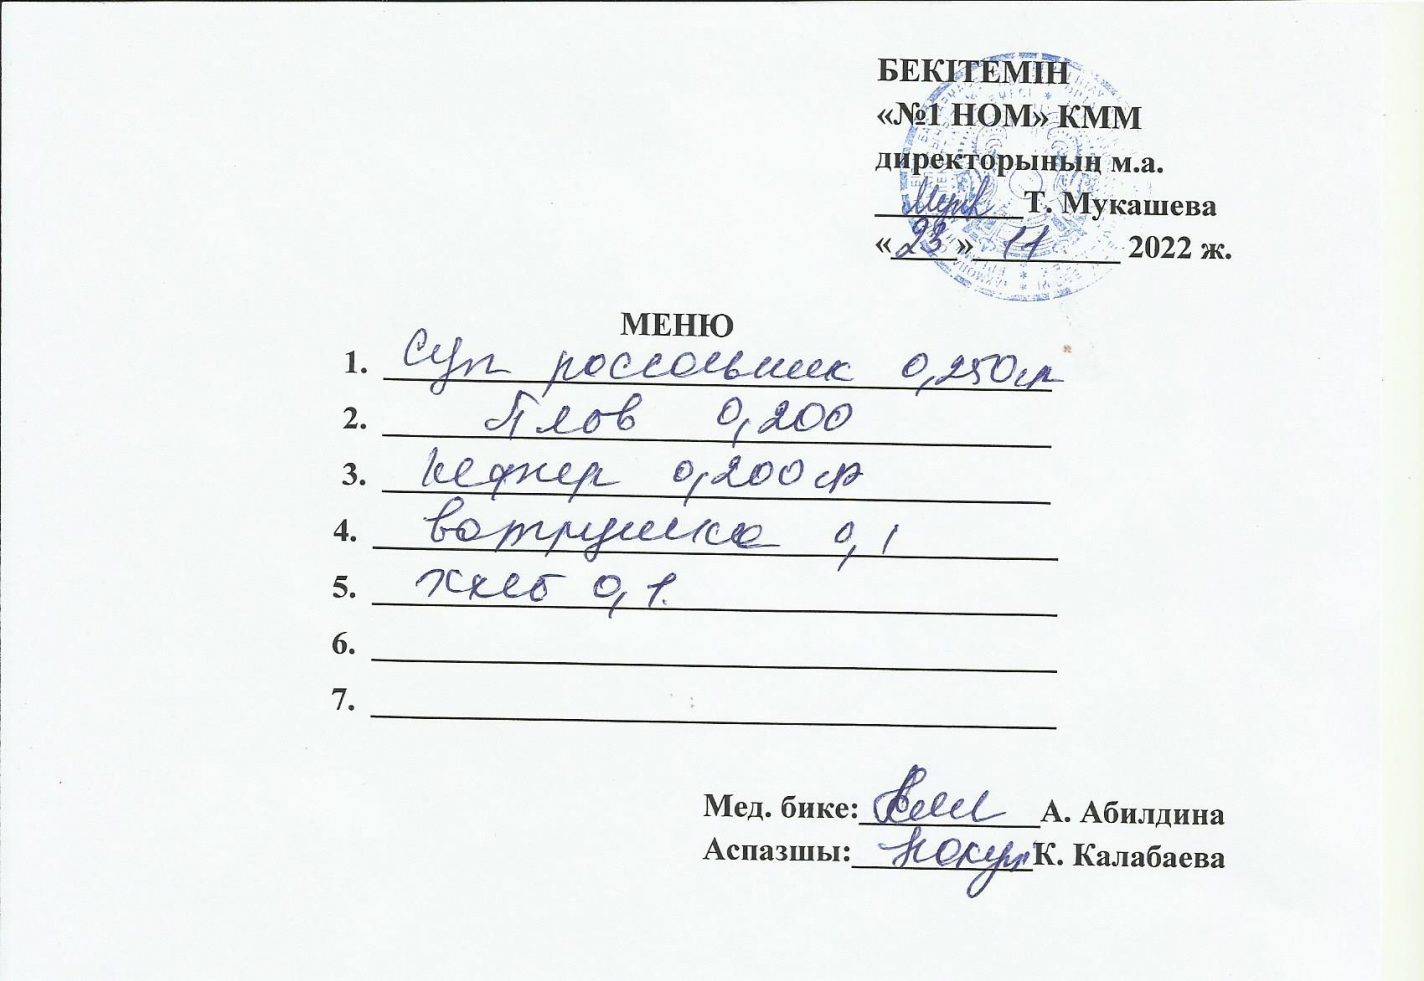 БЕКІТЕМІН
«№1 НОМ» КММ
директорының м.а.
Т. Мукашева
«23» 11 2022 ж.
МЕНЮ
1. Суп россольник 0,250гр
2. Плов 0,200
3. Кефир 0,200 гр
4. ватрушка 0,1
5. хлеб 0,1.
6.
7.
Мед. бике: А. Абилдина
Аспазшы: К. Калабаева